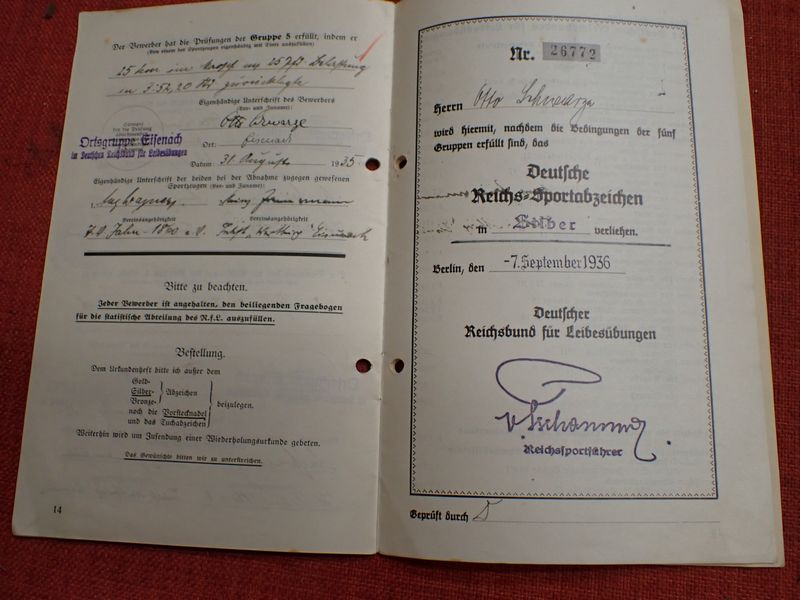 Der Bewerber hat die Prüfungen der Gruppe 5 erfüllt, indem er
(Von einem der Sportzeugen eigenhändig mit Tinte auszufüllen)
15 km im
in
Eigenhändige Unterschrift des Bewerbers
(Vor- und Zuname):
Otto
Ortsgruppe Eisenach
im Deutschen Reichsbund für Leibesübungen
Ort: Eisenach
Datum: 31. August 1935
Eigenhändige Unterschrift der beiden bei der Abnahme zugegen gewesenen
Sportzeugen (Vor- und Zuname):
1.
Vereinsangehörigkeit Vereinsangehörigkeit
Jahn-
Bitte zu beachten.
Jeder Bewerber ist angehalten, den beiliegenden Fragebogen
für die statistische Abteilung des R.f.L. auszufüllen.
Bestellung.
Dem Urkundenheft bitte ich außer dem
Gold-
Silber- Abzeichen
Bronze-
noch die Vorstecknadel beizulegen.
und das Tuchabzeichen
Weiterhin wird um Zusendung einer Wiederholungsurkunde gebeten.
Das Gewünschte bitten wir zu unterstreichen.
14
Nr. 26772
Herrn Otto Schwarze
wird hiermit, nachdem die Bedingungen der fünf
Gruppen erfüllt sind, das
Deutsche
Reichs-Sportabzeichen
in Silber verliehen.
Berlin, den -7. September 1936
Deutscher
Reichsbund für Leibesübungen
v. Tschammer
Reichssportführer
Geprüft durch